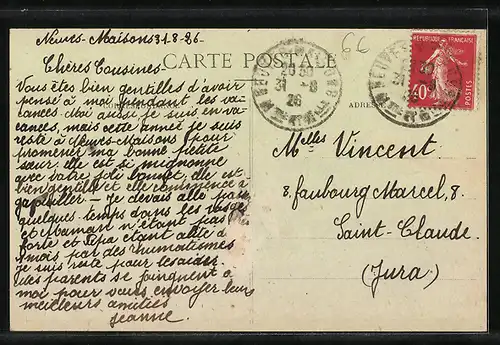 Neuves-Maisons 31-8-26-
66
CARTE POSTALE
Chères Cousines
Vous êtes bien gentilles d'avoir
pensé à moi pendant les va-
cances. Moi aussi je suis en va-
cances, mais cette année je suis
resté à Neuves-Maisons pour
promener ma bonne petite
sœur elle est si mignonne
avec votre joli bonnet, elle est
bien gentille et elle commence à
gazouiller - Je devais allé passer
quelques temps dans les Vosges
et Maman n'étant pas
forte et Papa étant alité
mois par des rhumatismes
je suis resté pour les aider.
Mes parents se joignent à
moi pour vous envoyer leurs
meilleurs amitiés
Jeanne.
ADRESSE
Melles Vincent
8, faubourg Marcel, 8.
Saint-Claude
(Jura)
REPUBLIQUE FRANÇAISE
40c
POSTES
31 -8
26